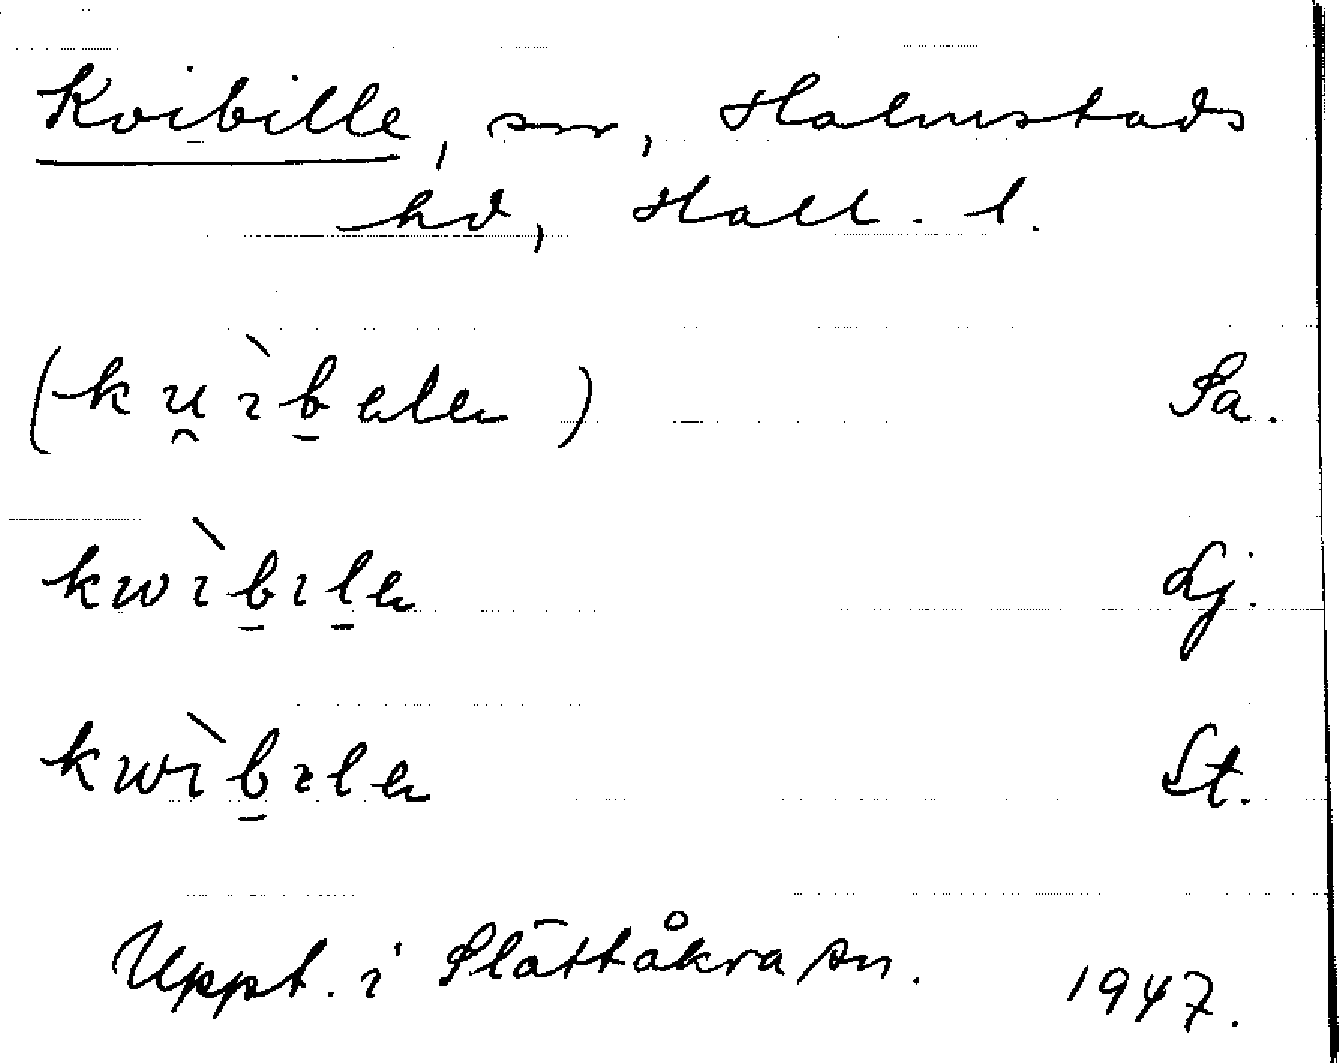 Kvibille, sn, Halmstads
hd, Hall. l.
(ku̯ɩ̀b̠ələn) Sa.
kwɩ̀b̠ɩl̠ən Lj.
kwɩ̀b̠ɩlən St.
Uppt. i Slättåkra sn. 1947.